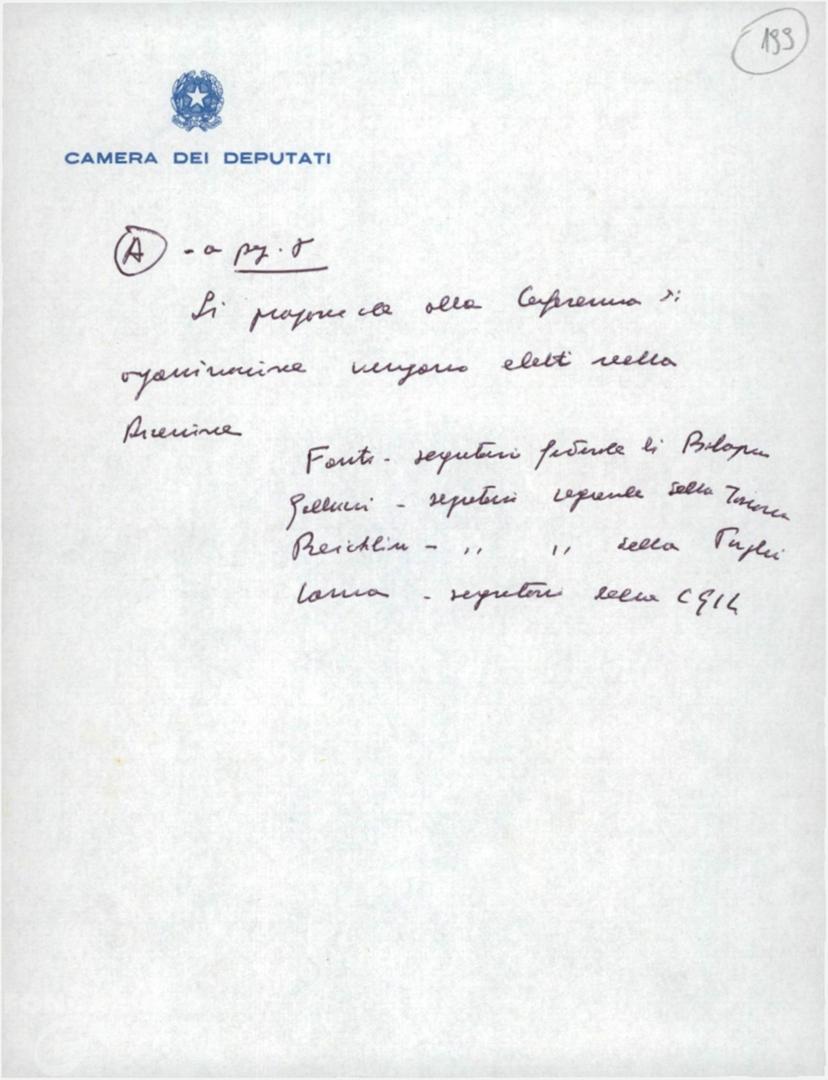 199
CAMERA DEI DEPUTATI
A - a pag. 8
Si propone che alla Conferenza di
organizzazione vengano eletti nella
Direzione
Fanti - segretario federale di Bologna
Galluzzi - segretario regionale della Toscana
Reichlin - ,, ,, della Puglia
Lama - segretario della CGIL